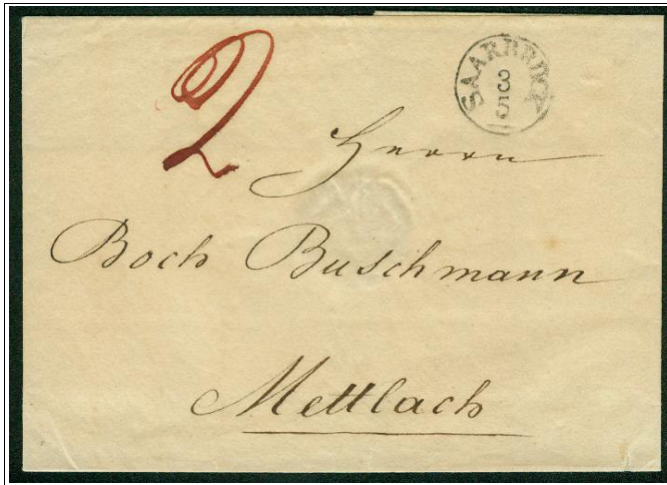 2
SAARBRÜCK
8
5
Herrn
Boch Buschmann
Mettlach